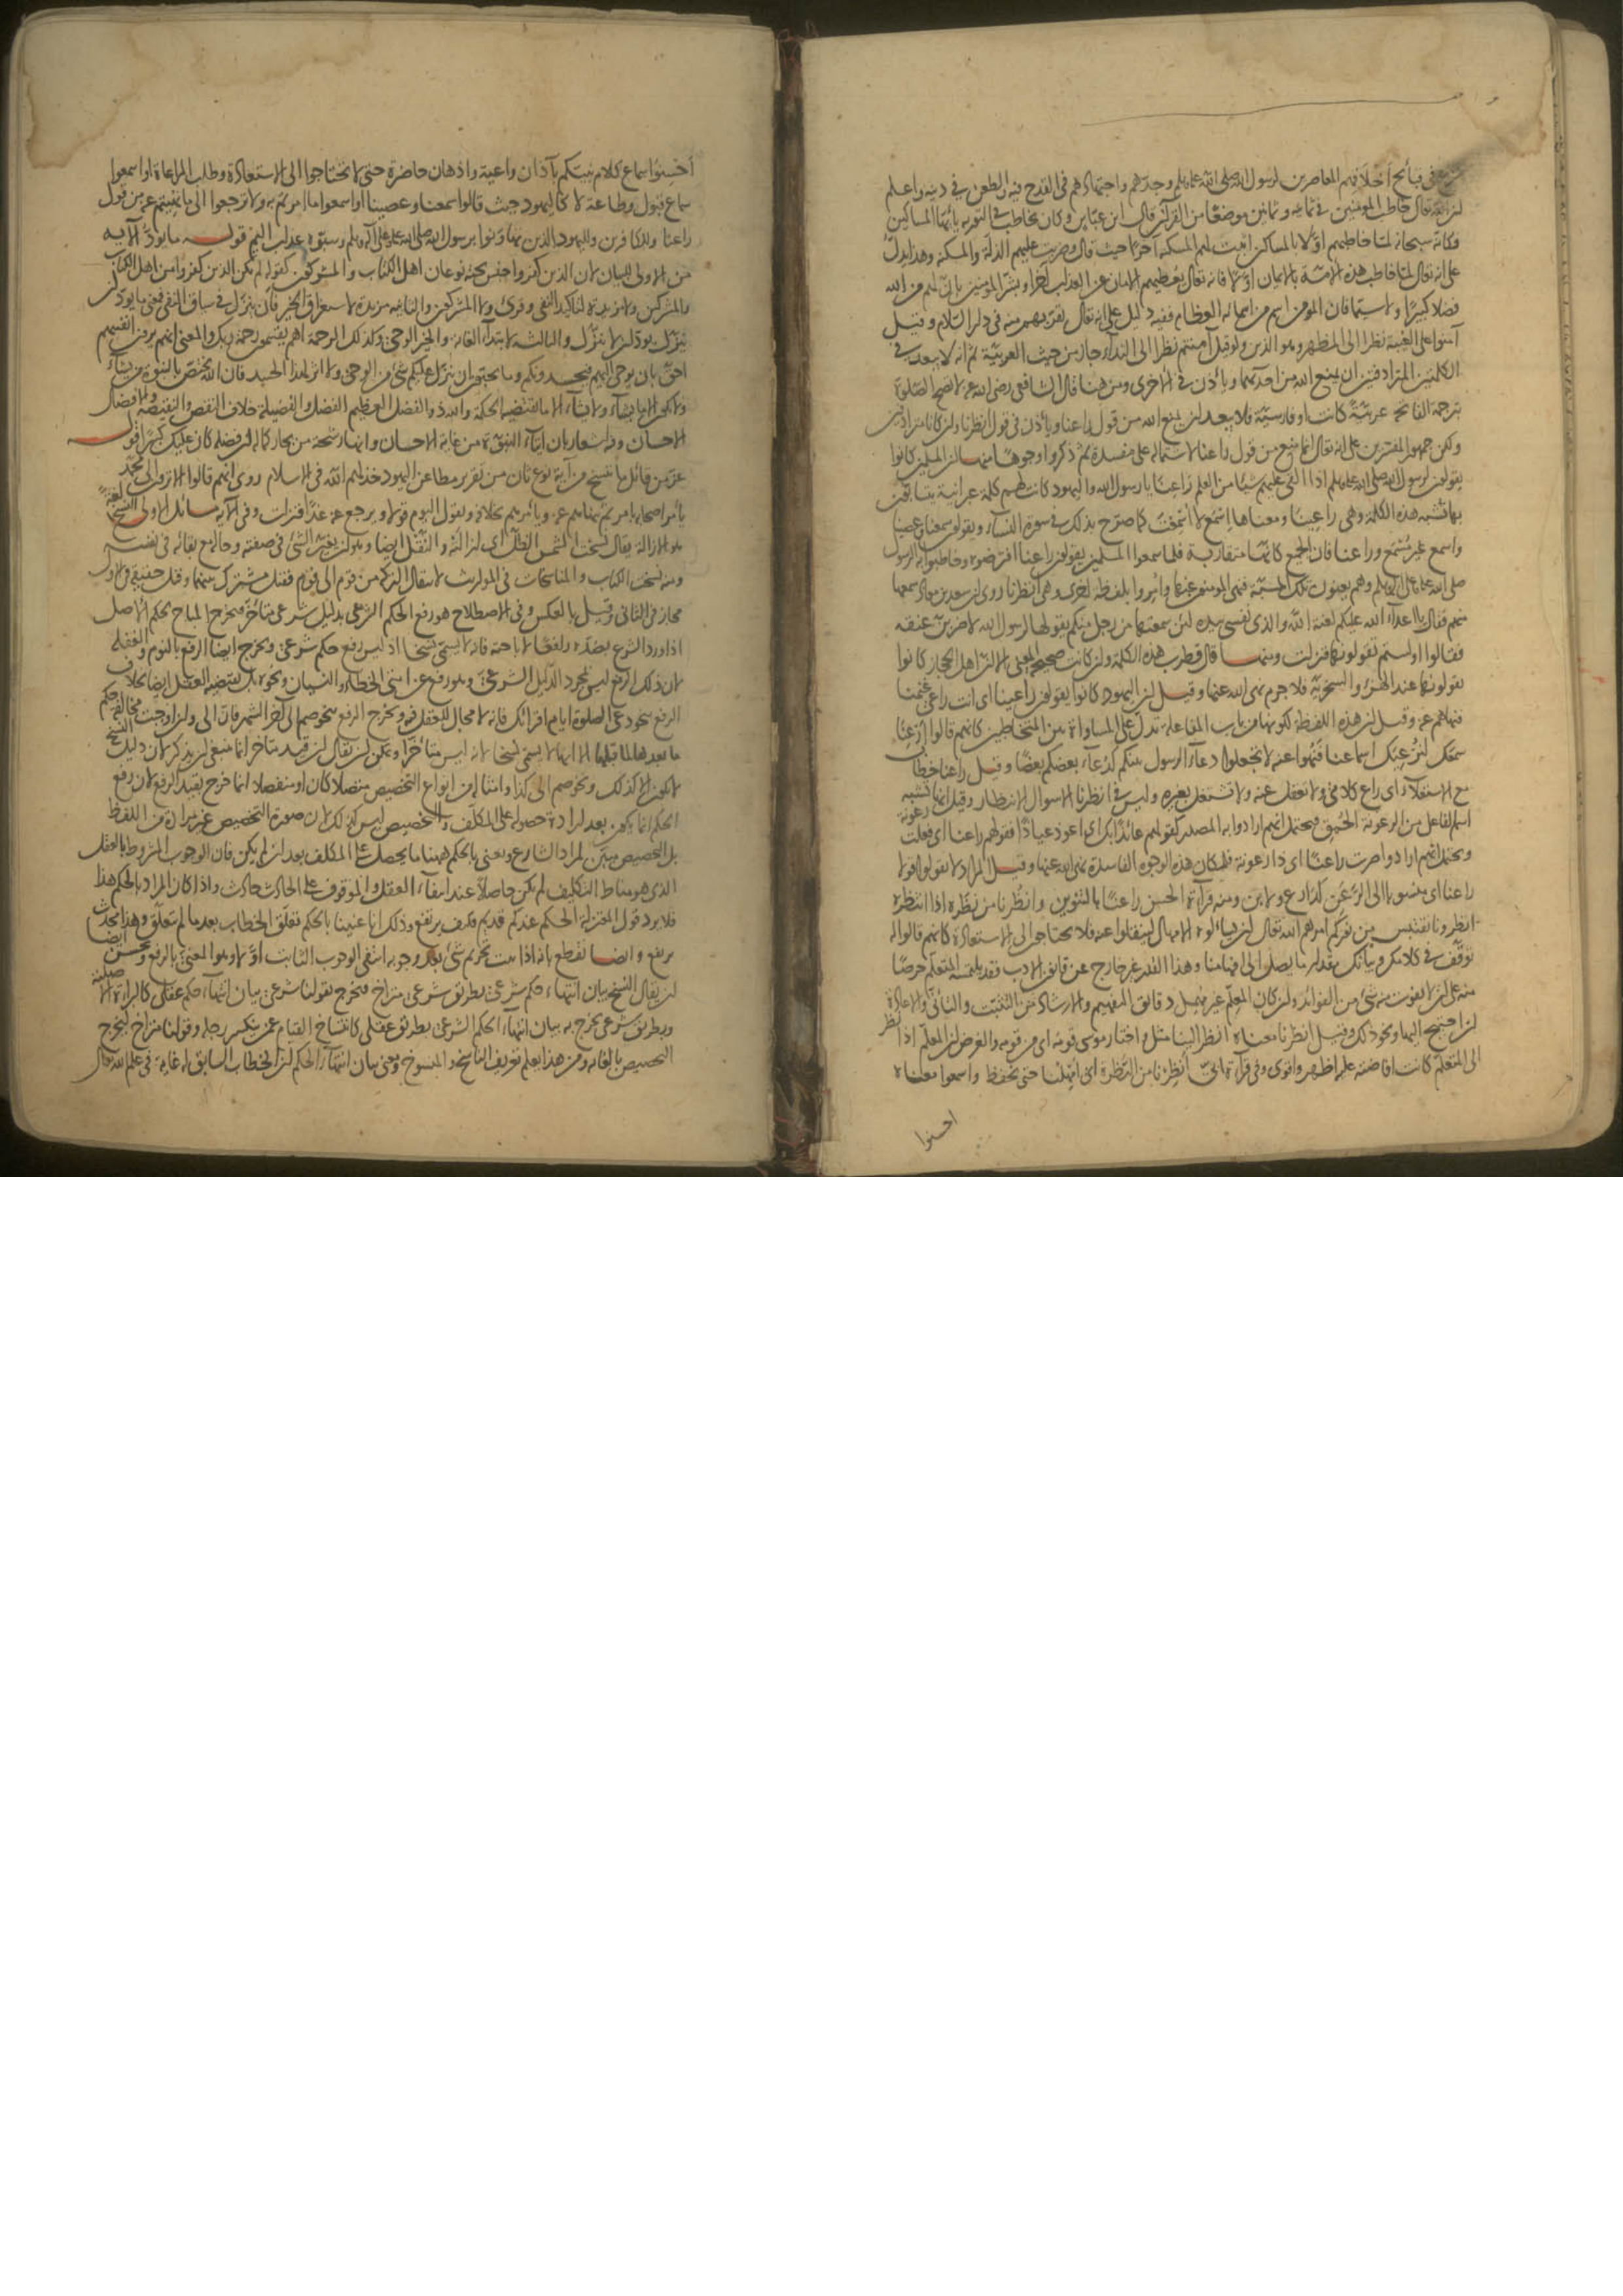 شرع في قبائح أخلاقهم المعاصرين لرسول الله صلى الله عليه وسلم وجدهم واجتهادهم في القدح فيه والطعن في دينه واعلم
ان الله تعالى خاطب المؤمنين في ثمانية وثمانين موضعا من القرآن قال ابن عباس وكان يخاطب في التورية يا ايها المساكين
وكانه سبحانه لما خاطبهم اولا بالمساكين اثبت لهم المسكنة آخرا حيث قال وضربت عليهم الذلة والمسكنة وهذا يدل
على انه تعالى لما خاطب هذه الامة بالايمان اولا فانه تعالى يعطيهم الامان من العذاب آخرا وبشر المؤمنين بان لهم من الله
فضلا كبيرا ولا سيما فان المؤمن اسم من اسمائه العظام ففيه دليل على انه تعالى يقربهم منه في دار السلام وقيل
آمنوا على الغيبة نظرا الى المظهر وهو الذين ولو قيل آمنتم نظرا الى النداء جاز من حيث العربية ثم انه لا يبعد في
الكلمتين المترادفتين ان يمنع الله من احديهما ويأذن في الاخرى ومن هنا قال الشافعي رضي الله عنه لا تصح الصلوة
بترجمة الفاتحة عربية كانت او فارسية فلا يبعد ان يمنع الله من قول راعنا ويأذن في قول انظرنا وان كانا مترادفين
ولكن جمهور المفسرين على انه تعالى انما منع من قول راعنا لاشتماله على مفسدة ثم ذكروا وجوها منها ان المسلمين كانوا
يقولون لرسول الله صلى الله عليه وسلم اذا القى عليهم شيئا من العلم راعنا يا رسول الله واليهود كانت لهم كلمة عبرانية يتسابون
بها تشبه هذه الكلمة وهي راعينا ومعناها اسمع لا اسمعت كما صرح بذلك في سورة النساء ويقولون سمعنا وعصينا
واسمع غير مسمع وراعنا فان الجميع كانها متقاربة فلما سمعوا المسلمين يقولون راعنا افترضوه وخاطبوا به الرسول
صلى الله عليه وآله وسلم وهم يعنون تلك المسبة فنهى المؤمنون عنها وامروا بلفظة اخرى وهي انظرنا روى ان سعد بن معاذ سمعها
منهم فقال يا اعداء الله عليكم لعنة الله والذي نفسي بيده لئن سمعتها من رجل منكم يقولها لرسول الله لاضربن عنقه
فقالوا اولستم تقولونها فنزلت ومنها قال قطرب هذه الكلمة وان كانت صحيحة المعنى الا ان اهل الحجاز كانوا
يقولونها عند الهزء والسخرية فلا جرم نهى الله عنها وقيل ان اليهود كانوا يقولون راعينا اي انت راعي غنمنا
فنهاهم عنه وقيل ان هذه اللفظة لكونها من باب المفاعلة تدل على المساواة بين المتخاطبين كانهم قالوا ارعنا
سمعك لنرعيك اسماعنا فنهوا عنه لا تجعلوا دعاء الرسول بينكم كدعاء بعضكم بعضا وقيل راعنا خطاب
مع الاستعلاء اي راع كلامي ولا تغفل عنه ولا تشتغل بغيره وليس في انظرنا الا سؤال الانتظار وقيل انها تشبه
اسم الفاعل من الرعونة الحمق فيحتمل انهم ارادوا به المصدر كقولهم عائذا بك اي اعوذ عياذا فقولهم راعنا اي فعلت رعونة
ويحتمل انهم ارادوا صرت راعنا اي ذا رعونة فلمكان هذه الوجوه الفاسدة نهى الله عنها وقيل المراد لا تقولوا قولا
راعنا اي منسوبا الى الرعن كدارع ولابن ومنه قراءة الحسن راعنا بالتنوين وانظرنا من نظره اذا انتظره
انظرونا نقتبس من نوركم امرهم الله تعالى ان يسألوه الامهال لينقلوا عنه فلا يحتاجوا الى الاستعادة كانهم قالوا له
توقف في كلامك وبيانك بقدر ما يصل الى افهامنا وهذا القدر غير خارج عن قانون الادب فقد يلتمسه المتعلم حرصا
منه على ان لا يفوت منه شيء من الفوائد وان كان المعلم غير مهمل دقائق التفهيم والارشاد من التثبت والتأني والاعادة
ان احتيج اليها ونحو ذلك وقيل انظرنا معناه انظر الينا مثل واختار موسى قومه اي من قومه والغرض ان المعلم اذا نظر
الى المتعلم كانت افاضته عليه اظهر واقوى وفي قراءة ابي انظرنا من النظرة اي امهلنا حتى نحفظ واسمعوا معناه
احسنوا
أحسنوا سماع كلام نبيكم بآذان واعية واذهان حاضرة حتى لا تحتاجوا الى الاستعادة وطلب المراعاة او اسمعوا
سماع قبول وطاعة لا كاليهود حيث قالوا سمعنا وعصينا او اسمعوا ما امرتم به ولا ترجعوا الى ما نهيتم عنه من قول
راعنا وللكافرين ولليهود الذين تهاونوا برسول الله صلى الله عليه وعلى آله وسلم وسبوه عذاب اليم قوله ما يود الآية
من الاولى للبيان لان الذين كفروا جنس تحته نوعان اهل الكتاب والمشركون كقوله لم يكن الذين كفروا من اهل الكتاب
والمشركين ولا مزيدة لتاكيد النفي وقرئ ولا المشركون والثانية مزيدة لاستغراق الخير فان ينزل في سياق النفي فمعنى ما يود ان
ينزل يود ان لا ينزل والثالثة لابتداء الغاية والخير الوحي وكذلك الرحمة اهم يقسمون رحمة ربك والمعنى انهم يرون انفسهم
احق بان يوحى اليهم فيحسدونكم وما يحبون ان ينزل عليكم شيء من الوحي ولا اثر لهذا الحسد فان الله يختص بالنبوة من يشاء
ولا يكون الا ما يشاء ولا يشاء الا ما تقتضيه الحكمة والله ذو الفضل العظيم الفضل والفضيلة خلاف النقص والنقيصة والافضال
الاحسان وفيه اشعار بان ايتاء النبوة من غاية الاحسان وانها رشحة من بحار كماله ان فضله كان عليك كبيرا قوله
عز من قائل ما ننسخ من آية نوع ثان من تقرير مطاعن اليهود خذلهم الله في الاسلام روي انهم قالوا الا ترون الى محمد
يأمر اصحابه بامر ثم ينهاهم عنه ويأمرهم بخلافه ويقول اليوم قولا ويرجع عنه غدا فنزلت وفي الآية مسائل الاولى النسخ لغة
هو الازالة يقال نسخت الشمس الظل اي ازالته والنقل ايضا وهو ان يتغير الشيء في صفته وحاله مع بقائه في نفسه
ومنه نسخت الكتاب والمناسخات في المواريث لانتقال التركة من قوم الى قوم فقيل مشترك بينهما وقيل حقيقة في الاول
مجاز في الثاني وقيل بالعكس وفي الاصطلاح هو رفع الحكم الشرعي بدليل شرعي متأخر فيخرج المباح بحكم الاصل
اذا ورد الشرع بضده رافعا لاباحته فانه لا يسمى نسخا اذ ليس رفع حكم شرعي ويخرج ايضا الرفع بالنوم والغفلة
لان ذلك الرفع ليس لمجرد الدليل الشرعي وهو رفع عن امتي الخطاء والنسيان ونحوه بل يقتضيه العقل ايضا بخلاف
الرفع بنحو دعي الصلوة ايام اقرائك فانه لا مجال للعقل فيه ويخرج الرفع بنحو صم الى آخر الشهر فان الى وان اوجبت مخالفة حكم
ما بعدها لما قبلها الا انها لا يسمى نسخا لانه ليس متأخرا ويمكن ان يقال ان قيد متاخر انما ينبغي ان يذكر لان دليل النسخ
لا يكون الا كذلك ونحو صم الى كذا وامثاله من انواع التخصيص متصلا كان او منفصلا انما خرج بقيد الرفع لان رفع
الحكم انما يكون بعد ارادة حصوله على المكلف والتخصيص ليس كذلك لان صورة التخصيص غير مرادة من اللفظ
بل التخصيص مبين لمراد الشارع ونعني بالحكم ههنا ما يحصل على المكلف بعد ان لم يكن فان الوجوب المشروط بالعقل
الذي هو مناط التكليف لم يكن حاصلا عند انتفاء العقل والموقوف على الحادث حادث واذا كان المراد بالحكم هذا
فلا يرد قول المعتزلة الحكم عندكم قديم فكيف يرتفع وذلك انا عنينا بالحكم تعلق الخطاب بعد ما لم يتعلق وهذا محدث
يرتفع وايضا نقطع بانه اذا ثبت تحريم شيء بعد وجوبه انتفى الوجوب الثابت اولا وهو المعني بالرفع ويحسن ايضا
ان يقال النسخ بيان انتهاء حكم شرعي بطريق شرعي متراخ فيخرج بقولنا شرعي بيان انتهاء حكم عقلي كالبراءة الاصلية
وبطريق شرعي يخرج به بيان انتهاء الحكم الشرعي بطريق عقلي كانتساخ القيام عمن ينكسر رجله وقولنا متراخ ليخرج
التخصيص بالغاية ومن هذا يعلم تعريف الناسخ والمنسوخ ومعنى بيان انتهاء الحكم ان الخطاب السابق له غاية في علم الله تعالى